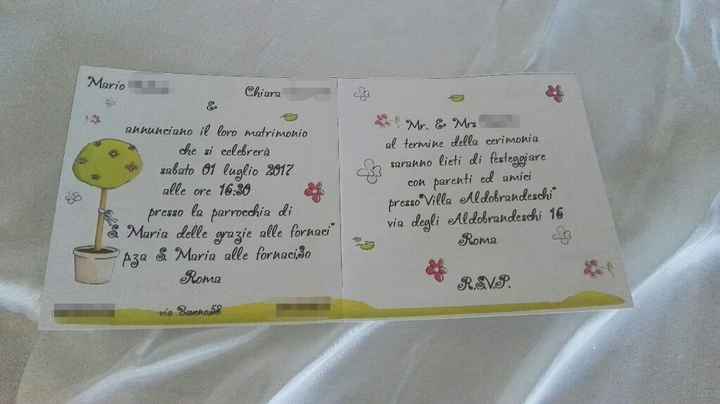 Mario
Chiara
&
annunciano il loro matrimonio
che si celebrerà
sabato 01 luglio 2017
alle ore 16.30
presso la parrocchia di
S Maria delle grazie alle fornaci"
p.za S. Maria alle fornaci,
Roma
via 58
Mr. & Mrs
al termine della cerimonia
saranno lieti di festeggiare
con parenti ed amici
presso "Villa Aldobrandeschi"
via degli Aldobrandeschi 16
Roma
R.S.V.P.